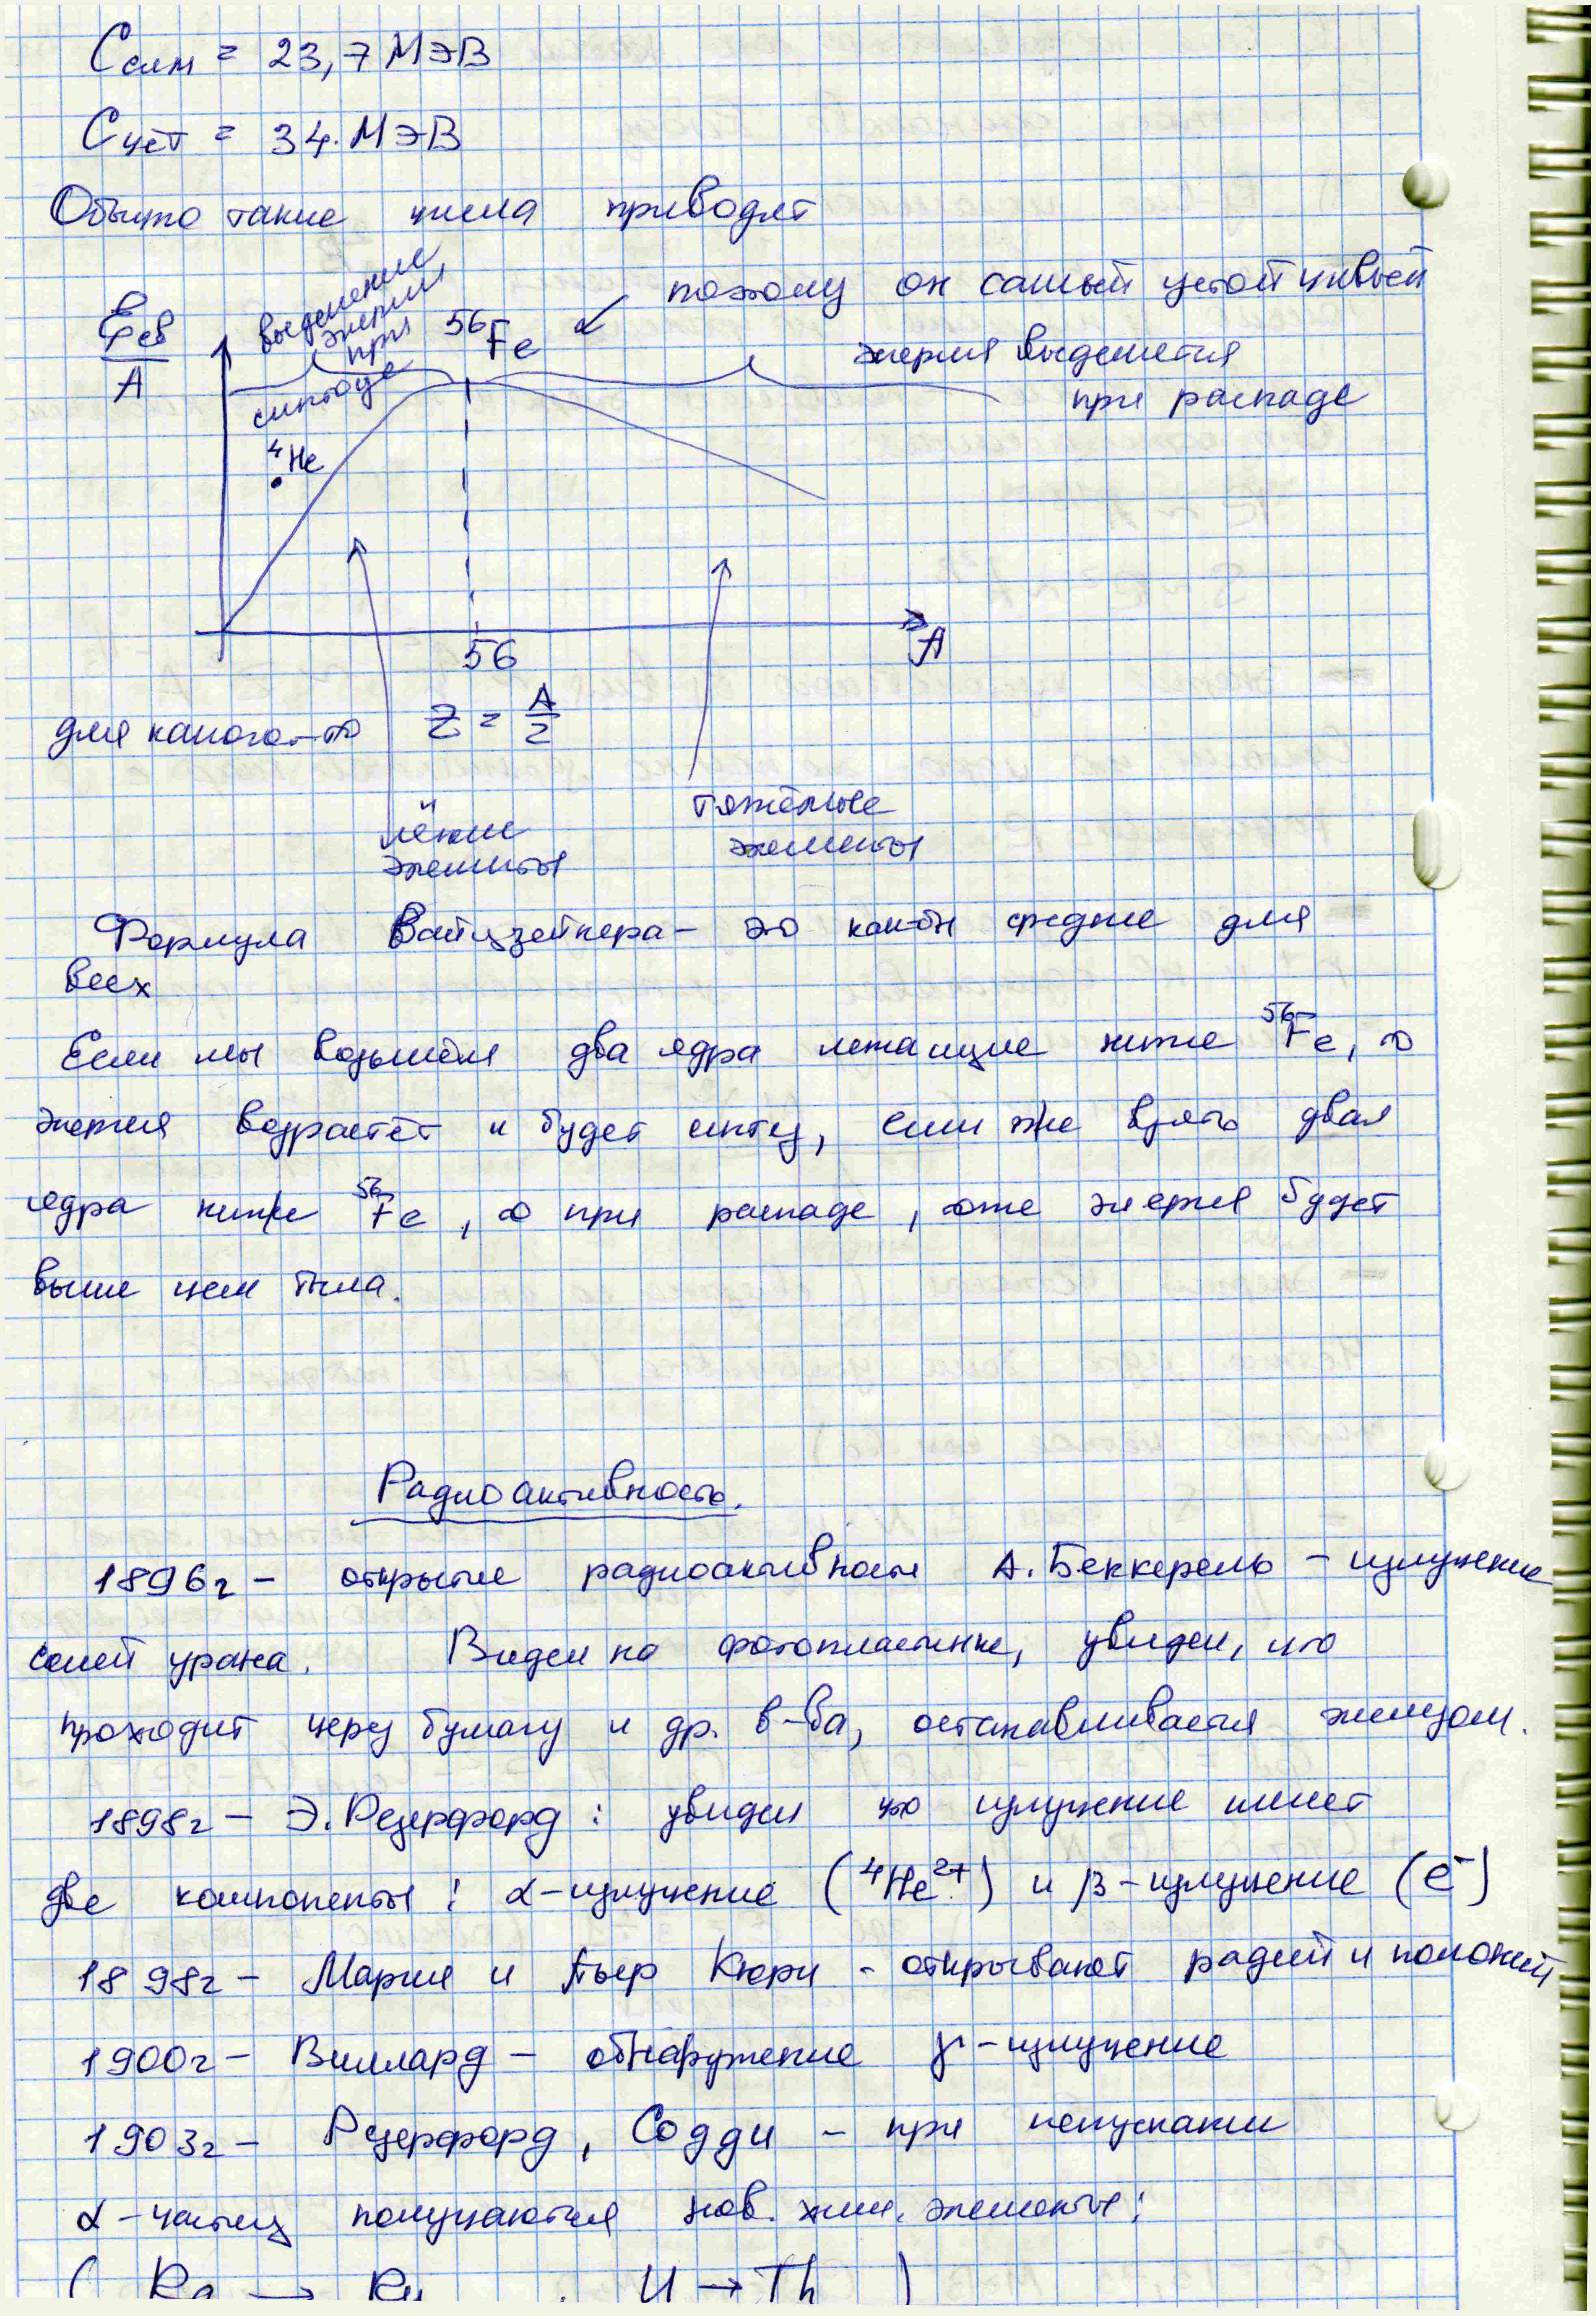 Cсим = 23,7 МэВ
Cчёт = 34 МэВ
Обычно такие числа приводят
поэтому он самый устойчивый
Eсв/A
выделение энергии при синтезе
⁵⁶Fe
энергия выделяется
при распаде
⁴He
56
A
для какого-то Z = A/2
лёгкие
элементы
тяжёлые
элементы
Формула Вайцзейкера – это как-бы средние для
всех
Если мы возьмём два ядра лежащие ниже ⁵⁶Fe, то
энергия возрастёт и будет синтез, если же взять два
ядра ниже ⁵⁶Fe, то при распаде, тоже энергия будет
выше чем была.
Радиоактивность.
1896г – открытие радиоактивности А. Беккерель – излучение
солей урана. Видел на фотопластинке, увидел, что
проходит через бумагу и др. в-ва, останавливается железом.
1898г – Э. Резерфорд: увидел что излучение имеет
две компоненты: α-излучение (⁴He²⁺) и β-излучение (e⁻)
1898г – Мария и Пьер Кюри - открывают радий и полоний
1900г – Виллард – обнаружение γ-излучение
1903г – Резерфорд, Содди – при испускании
α-частиц получаются нов. хим. элементы:
( Ra → Rn , U → Th )